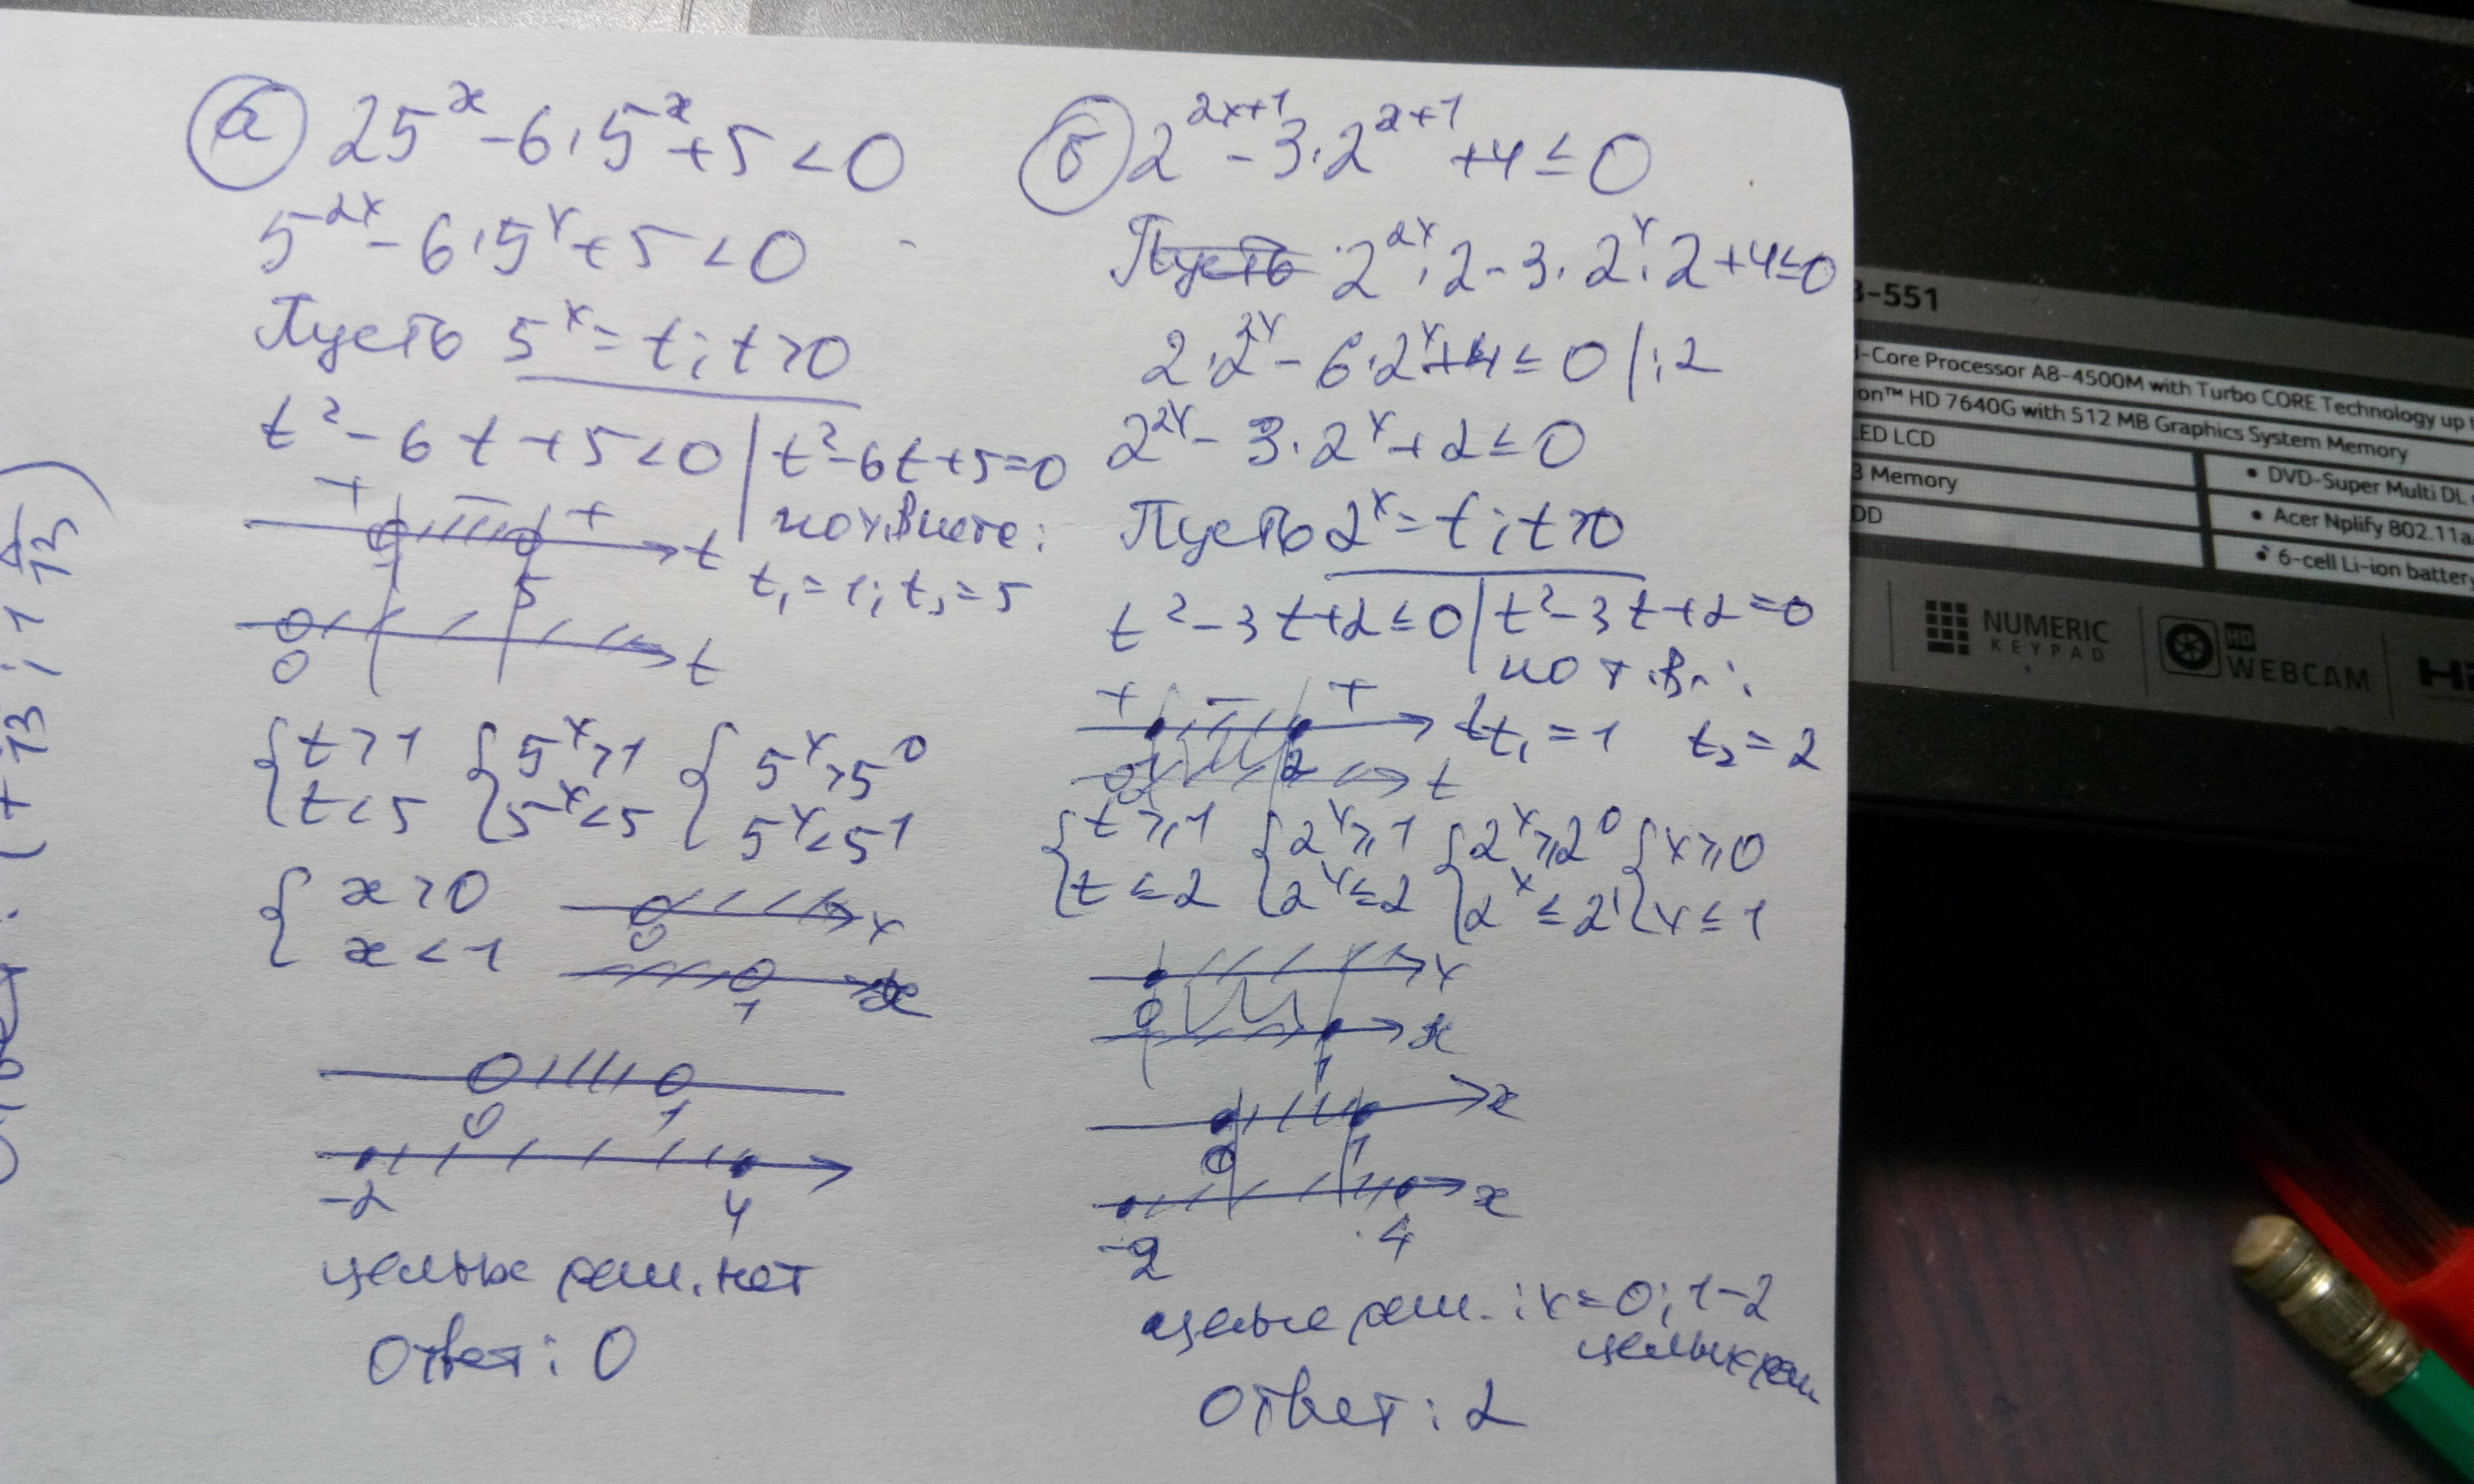 а) 25^x - 6·5^x + 5 < 0
5^2x - 6·5^x + 5 < 0
Пусть 5^x = t; t > 0
t² - 6t + 5 < 0 | t² - 6t + 5 = 0
+ - +
по т. Виете:
1 5 t
t₁ = 1; t₂ = 5
0 t
{ t > 1 { 5^x > 1 { 5^x > 5^0
t < 5 5^x < 5 5^x < 5^1
{ x > 0
x < 1
0 x
1 x
0 1
-2 4
целых реш. нет
Ответ: 0
б) 2^2x+1 - 3·2^x+1 + 4 ≤ 0
Пусть 2^2x·2 - 3·2^x·2 + 4 ≤ 0
2·2^2x - 6·2^x + 4 ≤ 0 |:2
2^2x - 3·2^x + 2 ≤ 0
Пусть 2^x = t; t > 0
t² - 3t + 2 ≤ 0 | t² - 3t + 2 = 0
по т. В.:
+ - + t
t₁ = 1 t₂ = 2
0 1 2 t
{ t ≥ 1 { 2^x ≥ 1 { 2^x ≥ 2^0 { x ≥ 0
t ≤ 2 2^x ≤ 2 2^x ≤ 2^1 x ≤ 1
0 x
1 x
0 1 x
-2 4 x
целые реш.: x = 0; 1 - 2
целых реш.
Ответ: 2
3-551
-Core Processor A8-4500M with Turbo CORE Technology up
on™ HD 7640G with 512 MB Graphics System Memory
LED LCD
3 Memory
DD
• DVD-Super Multi DL
• Acer Nplify 802.11a
• 6-cell Li-ion battery
NUMERIC
KEYPAD
HD
WEBCAM